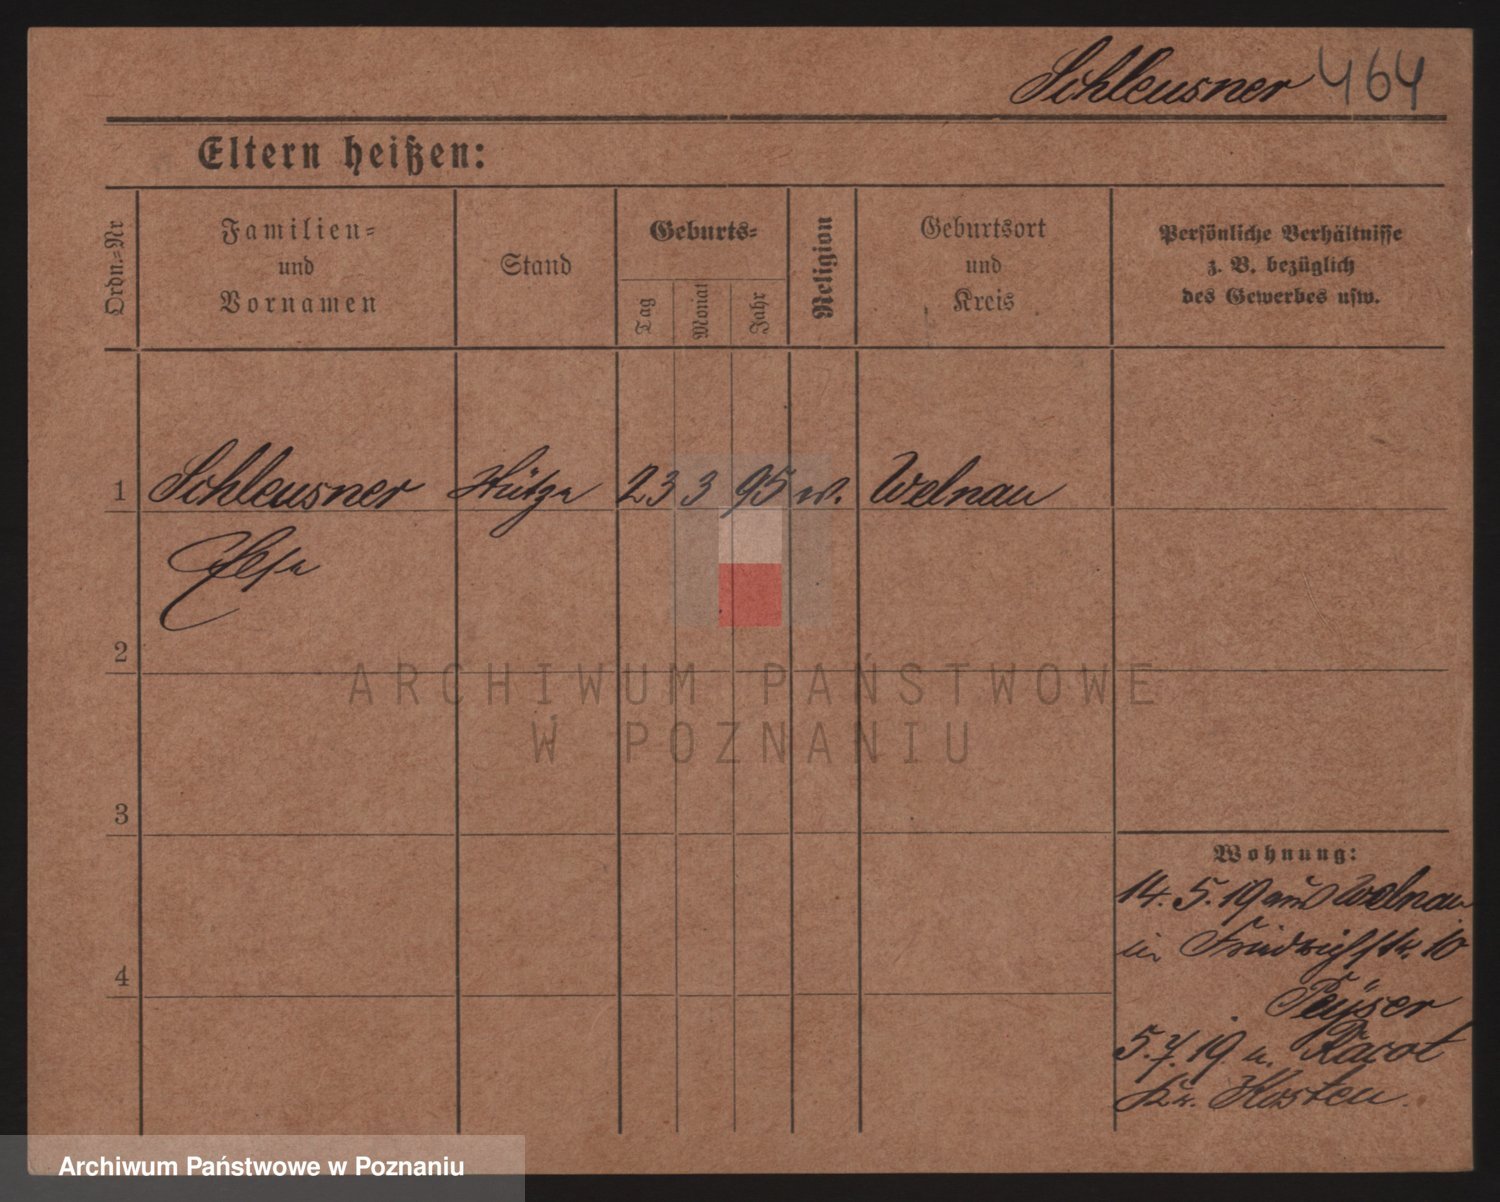 Schleusner 464
Eltern heißen:
Ordn.-Nr
Familien-
und
Vornamen
Stand
Geburts-
Tag
Monat
Jahr
Religion
Geburtsort
und
Kreis
Persönliche Verhältnisse
z. B. bezüglich
des Gewerbes usw.
1 Schleusner Stütze 23 3 95 ev. Welnau
Else
2
3
4
ARCHIWUM PAŃSTWOWE
W POZNANIU
Wohnung:
14. 5. 19 aus Welnau
in Friedrichstr. 10
Peyser
5. 7. 19. n. Racot
Kr. Kosten.
Archiwum Państwowe w Poznaniu